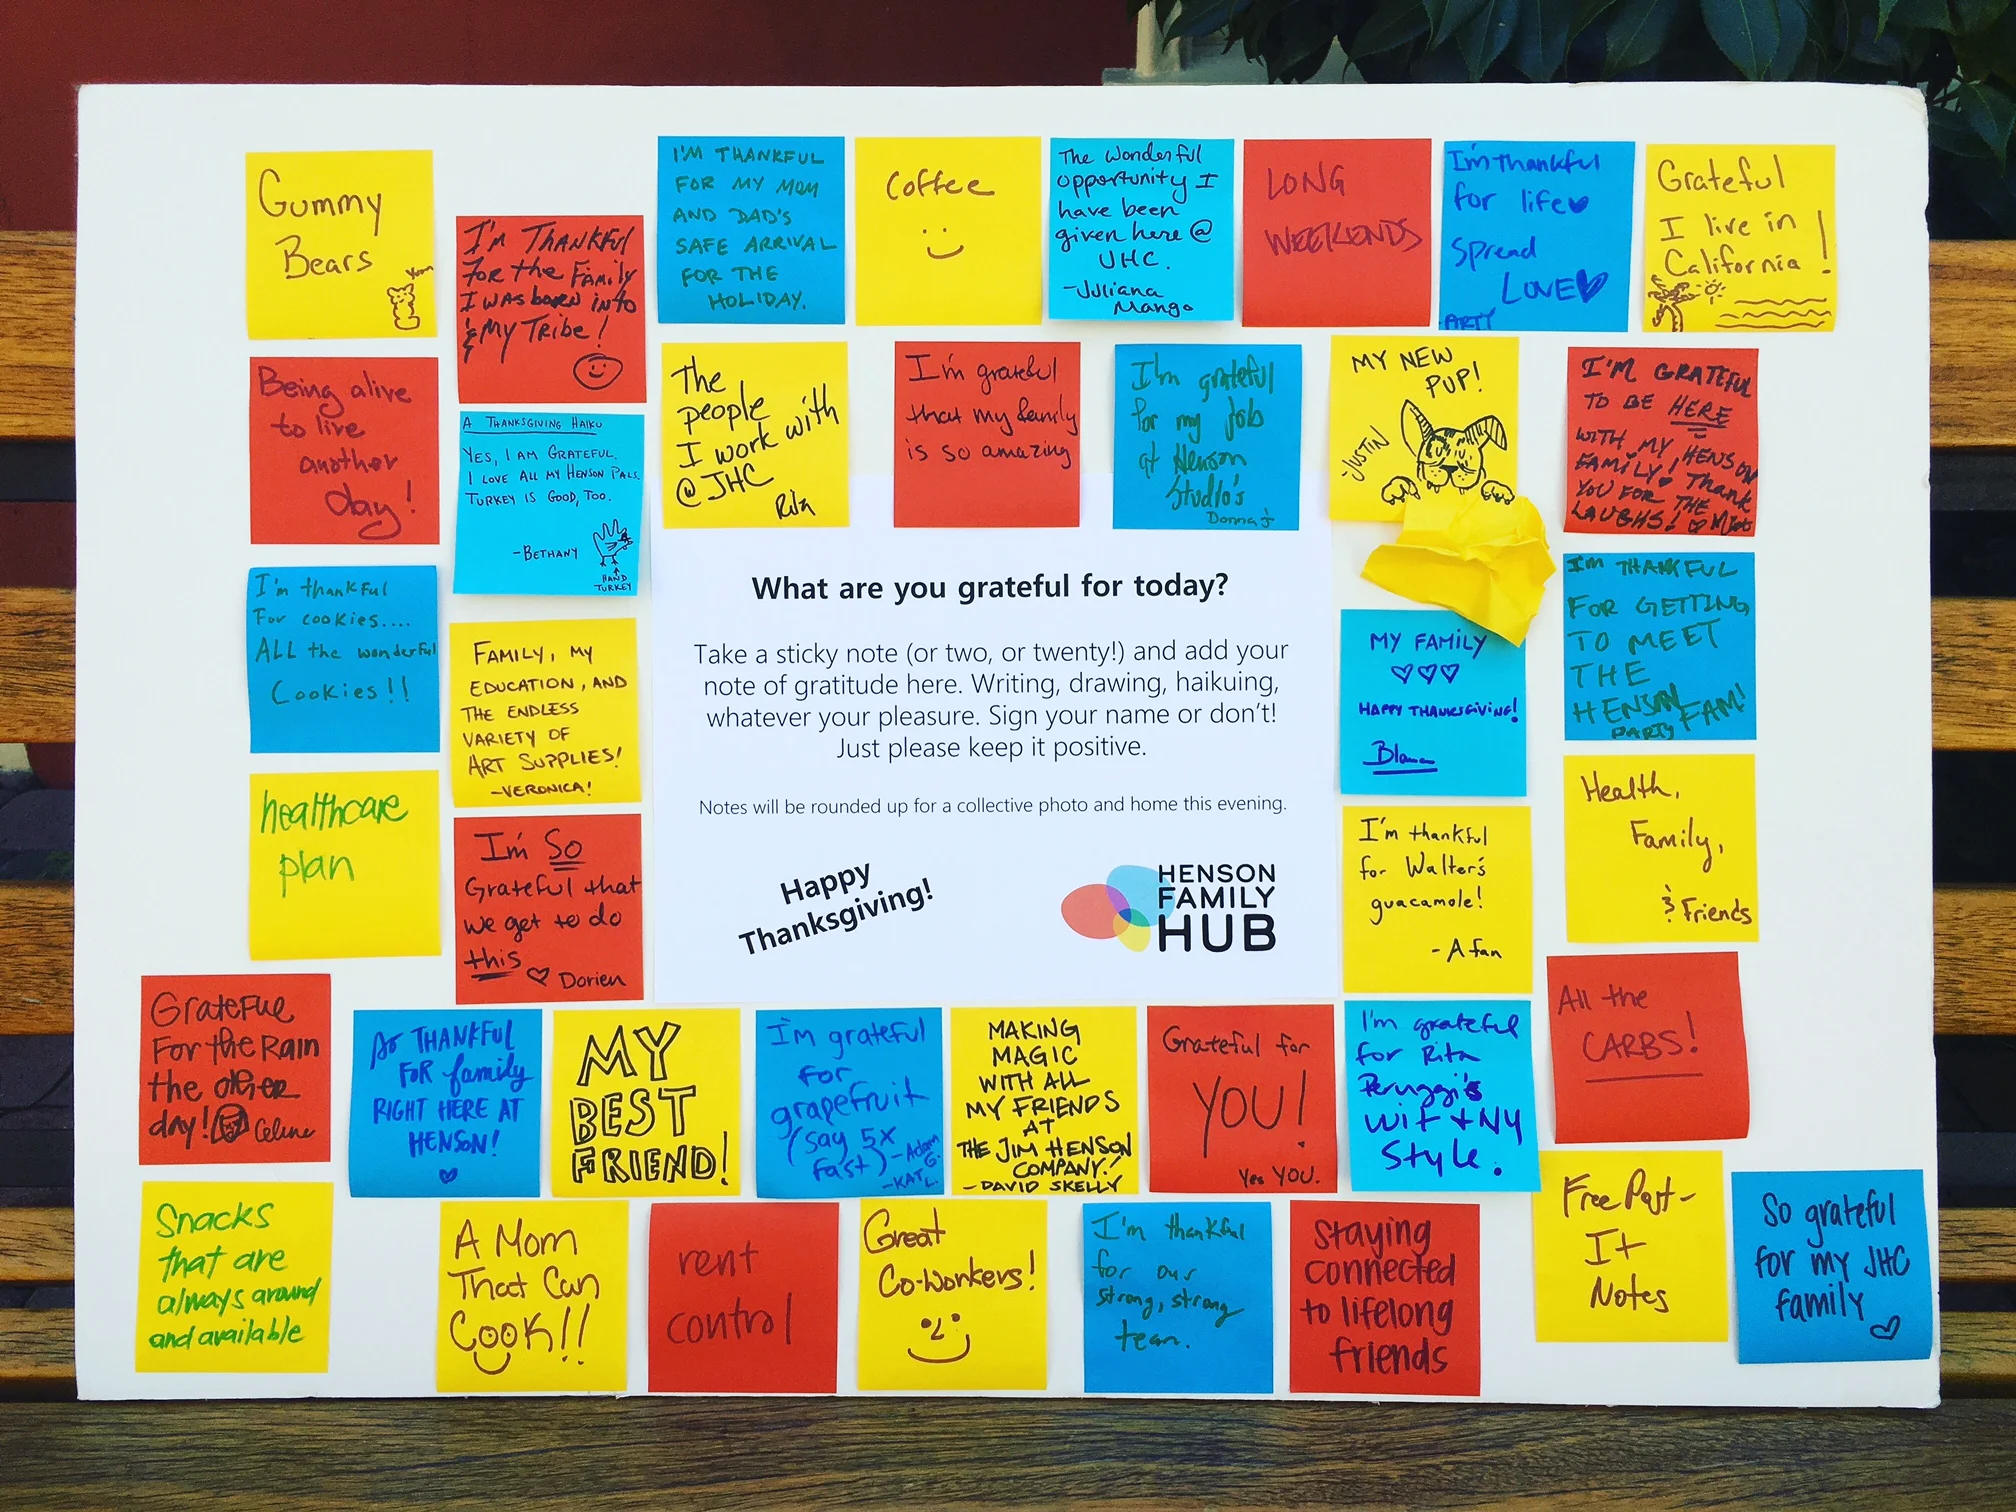 Gummy
Bears
Yum
I'm THANKFUL
For the Family
I was born into
& My Tribe!
I'M THANKFUL
FOR MY MOM
AND DAD'S
SAFE ARRIVAL
FOR THE
HOLIDAY.
Coffee
The wonderful
opportunity I
have been
given here @
JHC.
-Juliana
Mango
LONG
WEEKENDS
I'm thankful
for life
Spread
LOVE
ARTY
Grateful
I live in
California!
Being alive
to live
another
day!
A THANKSGIVING HAIKU
YES, I AM GRATEFUL.
I LOVE ALL MY HENSON PALS.
TURKEY IS GOOD, TOO.
-BETHANY
HAND
TURKEY
The
people
I work with
@JHC
Rita
I'm grateful
that my family
is so amazing
I'm grateful
for my job
at Henson
Studio's
Donna
MY NEW
PUP!
JUSTIN
I'M GRATEFUL
TO BE HERE
WITH MY HENSON
FAMILY! Thank
YOU FOR THE
LAUGHS!
I'm thankful
For cookies....
ALL the wonderful
Cookies!!
FAMILY, MY
EDUCATION, AND
THE ENDLESS
VARIETY OF
ART SUPPLIES!
-VERONICA!
What are you grateful for today?
Take a sticky note (or two, or twenty!) and add your
note of gratitude here. Writing, drawing, haikuing,
whatever your pleasure. Sign your name or don't!
Just please keep it positive.
Notes will be rounded up for a collective photo and home this evening.
Happy
Thanksgiving!
HENSON
FAMILY
HUB
MY FAMILY
HAPPY THANKSGIVING!
I'M THANKFUL
FOR GETTING
TO MEET
THE
HENSON
FAM!
PARTY
healthcare
plan
I'm So
Grateful that
we get to do
this
Dorien
I'm thankful
for Walter's
guacamole!
- A fan
Health,
Family,
& Friends
Grateful
For the Rain
the other
day!
Celine
THANKFUL
FOR family
RIGHT HERE AT
HENSON!
MY
BEST
FRIEND!
I'm grateful
for
grapefruit
(say 5x
fast)
-Adam
G.
-KAT
L.
MAKING
MAGIC
WITH ALL
MY FRIENDS
AT
THE JIM HENSON
COMPANY!
- DAVID SKELLY
Grateful for
YOU!
Yes YOU.
I'm grateful
for Rita
Peruggi's
wit + NY
Style.
All the
CARBS!
Snacks
that are
always around
and available
A Mom
That Can
Cook!!
rent
control
Great
Co-Workers!
I'm thankful
for our
strong, strong
team.
Staying
connected
to lifelong
friends
Free Post-
It
Notes
So grateful
for my JHC
family